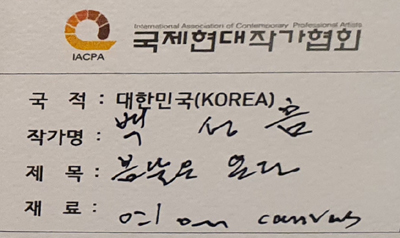 International Association of Contemporary Professional Artists
국제현대작가협회
IACPA
국 적 : 대한민국(KOREA)
작가명 : 백 선 흠
제 목 : 봄날은 온다
재 료 : on canvas